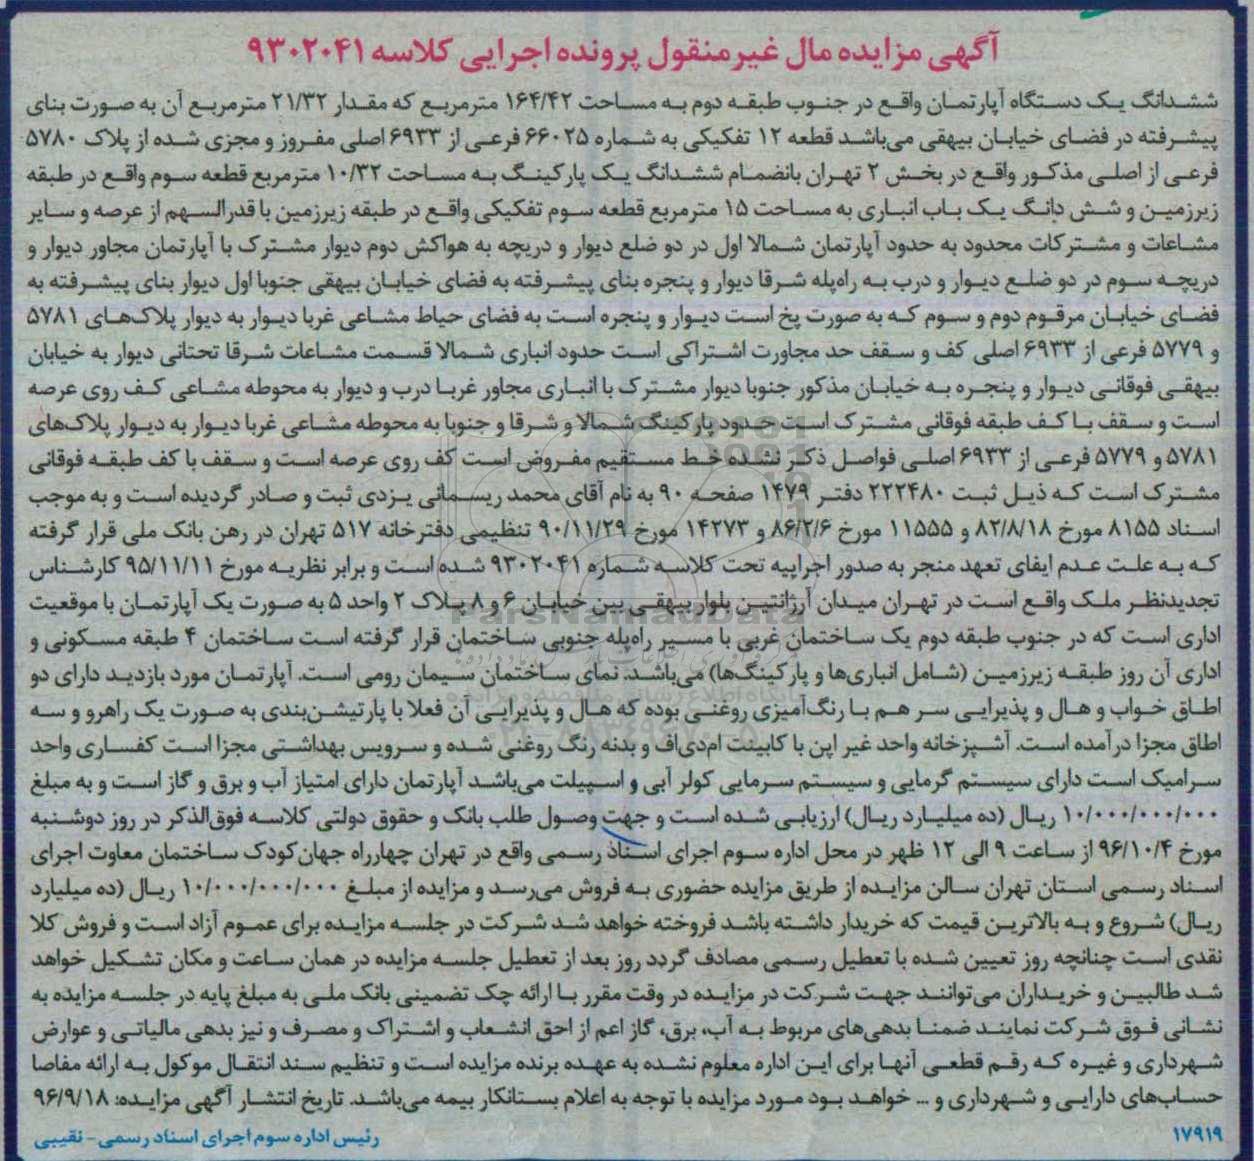 آگهی مزایده مال غیرمنقول پرونده اجرایی کلاسه ۹۳۰۲۰۴۱
ششدانگ یک دستگاه آپارتمان واقع در جنوب طبقه دوم به مساحت ۱۶۴/۴۲ مترمربع که مقدار ۲۱/۳۲ مترمربع آن به صورت بنای
پیشرفته در فضای خیابان بیهقی می‌باشد قطعه ۱۲ تفکیکی به شماره ۶۶۰۲۵ فرعی از ۶۹۳۳ اصلی مفروز و مجزی شده از پلاک ۵۷۸۰
فرعی از اصلی مذکور واقع در بخش ۲ تهران بانضمام ششدانگ یک پارکینگ به مساحت ۱۰/۳۲ مترمربع قطعه سوم واقع در طبقه
زیرزمین و شش دانگ یک باب انباری به مساحت ۱۵ مترمربع قطعه سوم تفکیکی واقع در طبقه زیرزمین با قدرالسهم از عرصه و سایر
مشاعات و مشترکات محدود به حدود آپارتمان شمالا اول در دو ضلع دیوار و دریچه به هواکش دوم دیوار مشترک با آپارتمان مجاور دیوار و
دریچه سوم در دو ضلع دیوار و درب به راه‌پله شرقا دیوار و پنجره بنای پیشرفته به فضای خیابان بیهقی جنوبا اول دیوار بنای پیشرفته به
فضای خیابان مرقوم دوم و سوم که به صورت پخ است دیوار و پنجره است به فضای حیاط مشاعی غربا دیوار به دیوار پلاک‌های ۵۷۸۱
و ۵۷۷۹ فرعی از ۶۹۳۳ اصلی کف و سقف حد مجاورت اشتراکی است حدود انباری شمالا قسمت مشاعات شرقا تحتانی دیوار به خیابان
بیهقی فوقانی دیوار و پنجره به خیابان مذکور جنوبا دیوار مشترک با انباری مجاور غربا درب و دیوار به محوطه مشاعی کف روی عرصه
است و سقف با کف طبقه فوقانی مشترک است حدود پارکینگ شمالا و شرقا و جنوبا به محوطه مشاعی غربا دیوار به دیوار پلاک‌های
۵۷۸۱ و ۵۷۷۹ فرعی از ۶۹۳۳ اصلی فواصل ذکر نشده خط مستقیم مفروض است کف روی عرصه است و سقف با کف طبقه فوقانی
مشترک است که ذیل ثبت ۲۲۲۴۸۰ دفتر ۱۴۷۹ صفحه ۹۰ به نام آقای محمد ریسمانی یزدی ثبت و صادر گردیده است و به موجب
اسناد ۸۱۵۵ مورخ ۸۲/۸/۱۸ و ۱۱۵۵۵ مورخ ۸۶/۲/۶ و ۱۴۲۷۳ مورخ ۹۰/۱۱/۲۹ تنظیمی دفترخانه ۵۱۷ تهران در رهن بانک ملی قرار گرفته
که به علت عدم ایفای تعهد منجر به صدور اجراییه تحت کلاسه شماره ۹۳۰۲۰۴۱ شده است و برابر نظریه مورخ ۹۵/۱۱/۱۱ کارشناس
تجدیدنظر ملک واقع است در تهران میدان آرژانتین بلوار بیهقی بین خیابان ۶ و ۸ پلاک ۲ واحد ۵ به صورت یک آپارتمان با موقعیت
اداری است که در جنوب طبقه دوم یک ساختمان غربی با مسیر راه‌پله جنوبی ساختمان قرار گرفته است ساختمان ۴ طبقه مسکونی و
اداری آن روز طبقه زیرزمین (شامل انباری‌ها و پارکینگ‌ها) می‌باشد. نمای ساختمان سیمان رومی است. آپارتمان مورد بازدید دارای دو
اطاق خواب و هال و پذیرایی سر هم با رنگ‌آمیزی روغنی بوده که هال و پذیرایی آن فعلا با پارتیشن‌بندی به صورت یک راهرو و سه
اطاق مجزا درآمده است. آشپزخانه واحد غیر اپن با کابینت ام‌دی‌اف و بدنه رنگ روغنی شده و سرویس بهداشتی مجزا است کفساری واحد
سرامیک است دارای سیستم گرمایی و سیستم سرمایی کولر آبی و اسپیلت می‌باشد آپارتمان دارای امتیاز آب و برق و گاز است و به مبلغ
۱۰/۰۰۰/۰۰۰/۰۰۰ ریال (ده میلیارد ریال) ارزیابی شده است و جهت وصول طلب بانک و حقوق دولتی کلاسه فوق‌الذکر در روز دوشنبه
مورخ ۹۶/۱۰/۴ از ساعت ۹ الی ۱۲ ظهر در محل اداره سوم اجرای اسناد رسمی واقع در تهران چهارراه جهان‌کودک ساختمان معاوت اجرای
اسناد رسمی استان تهران سالن مزایده از طریق مزایده حضوری به فروش می‌رسد و مزایده از مبلغ ۱۰/۰۰۰/۰۰۰/۰۰۰ ریال (ده میلیارد
ریال) شروع و به بالاترین قیمت که خریدار داشته باشد فروخته خواهد شد شرکت در جلسه مزایده برای عموم آزاد است و فروش کلا
نقدی است چنانچه روز تعیین شده با تعطیل رسمی مصادف گردد روز بعد از تعطیل جلسه مزایده در همان ساعت و مکان تشکیل خواهد
شد طالبین و خریداران می‌توانند جهت شرکت در مزایده در وقت مقرر با ارائه چک تضمینی بانک ملی به مبلغ پایه در جلسه مزایده به
نشانی فوق شرکت نمایند ضمنا بدهی‌های مربوط به آب، برق، گاز اعم از احق انشعاب و اشتراک و مصرف و نیز بدهی مالیاتی و عوارض
شهرداری و غیره که رقم قطعی آنها برای این اداره معلوم نشده به عهده برنده مزایده است و تنظیم سند انتقال موکول به ارائه مفاصا
حساب‌های دارایی و شهرداری و ... خواهد بود مورد مزایده با توجه به اعلام بستانکار بیمه می‌باشد. تاریخ انتشار آگهی مزایده: ۹۶/۹/۱۸
۱۷۹۱۹ رئیس اداره سوم اجرای اسناد رسمی - نقیبی
ParsNamadData
پایگاه اطلاع رسانی مناقصه و مزایده